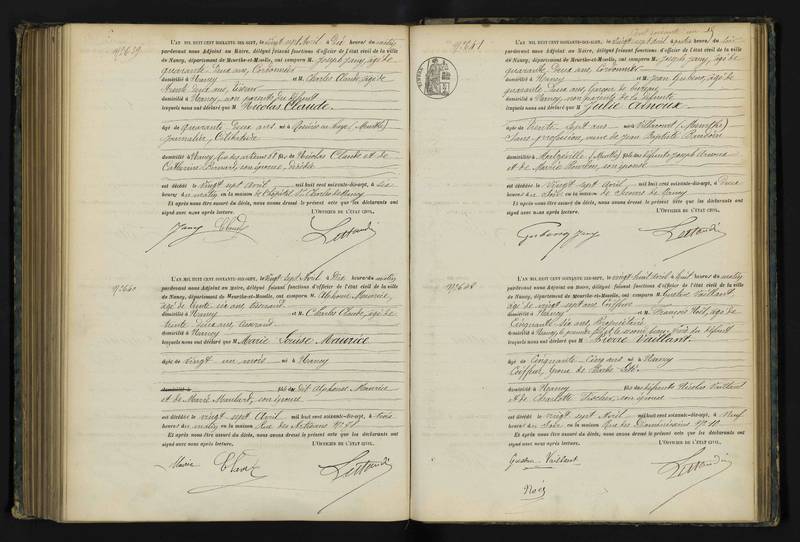 N° 639
L'AN MIL HUIT CENT SOIXANTE-DIX-SEPT, le vingt sept Avril à Dix heures du matin
pardevant nous Adjoint au Maire, délégué faisant fonctions d'officier de l'état civil de la ville
de Nancy, département de Meurthe-et-Moselle, ont comparu M. Joseph Jany, âgé de
quarante Deux ans, Cordonnier
domicilié à Nancy et M. Charles Claude, âgé de
trente deux ans,
domicilié à Nancy, non parents du défunt
lesquels nous ont déclaré que M Nicolas Claude.
âgé de quarante Deux ans né à Rosières en haye (Meurthe)
journalier, Célibataire
domicilié à Nancy, de Nicolas Claude et de
Catherine
est décédé le vingt sept avril mil huit cent soixante-dix-sept, à
heures du matin en la maison St Charles de Nancy
Et après nous être assuré du décès, nous avons dressé le présent acte que les déclarants ont
signé avec nous après lecture. L'OFFICIER DE L'ÉTAT CIVIL,
Jany Claude
N° 640
L'AN MIL HUIT CENT SOIXANTE-DIX-SEPT, le vingt sept Avril à Dix heures du matin
pardevant nous Adjoint au Maire, délégué faisant fonctions d'officier de l'état civil de la ville
de Nancy, département de Meurthe-et-Moselle, ont comparu M. Alphonse Maurice,
âgé de trente six ans, tisserand
domicilié à Nancy et M. Charles Claude, âgé de
trente deux ans, tisserand
domicilié à Nancy
lesquels nous ont déclaré que M Marie Louise Maurice
âgée de vingt un mois née à Nancy
domicilié à fille de dit Alphonse Maurice
et de Marie, son épouse
est décédée le vingt sept Avril mil huit cent soixante-dix-sept, à trois
heures du matin en la maison Rue des Artisans N° 28
Et après nous être assuré du décès, nous avons dressé le présent acte que les déclarants ont
signé avec nous après lecture. L'OFFICIER DE L'ÉTAT CIVIL,
Claude
N° 641
L'AN MIL HUIT CENT SOIXANTE-DIX-SEPT, le vingt sept avril à quatre heures du soir
pardevant nous Adjoint au Maire, délégué faisant fonctions d'officier de l'état civil de la ville
de Nancy, département de Meurthe-et-Moselle, ont comparu M. Joseph Jany, âgé de
quarante Deux ans, Cordonnier
domicilié à Nancy et M. Jean, âgé de
quarante Deux ans, Garçon de bureau
domicilié à Nancy, non parents de la défunte
lesquels nous ont déclaré que M Julie Arnoux.
âgée de trente sept ans née à (Meurthe)
Sans profession, veuve de Jean Baptiste
domiciliée à (Meurthe) fille des défunts Joseph Arnoux
et de Marie, son épouse
est décédée le vingt sept avril mil huit cent soixante-dix-sept, à Deux
heures du Soir en la maison de Secours de Nancy
Et après nous être assuré du décès, nous avons dressé le présent acte que les déclarants ont
signé avec nous après lecture. L'OFFICIER DE L'ÉTAT CIVIL,
Jany
L'AN MIL HUIT CENT SOIXANTE-DIX-SEPT, le vingt huit avril à huit heures du matin
pardevant nous Adjoint au Maire, délégué faisant fonctions d'officier de l'état civil de la ville
de Nancy, département de Meurthe-et-Moselle, ont comparu M. Gustave Vaillant,
âgé de vingt sept ans Coiffeur
domicilié à Nancy et M. François Noël, âgé de
Cinquante six ans, Propriétaire
domicilié à Nancy, le premier fils, le second beau-frère du défunt
lesquels nous ont déclaré que M Pierre Vaillant.
âgé de Cinquante Cinq ans né à Nancy
Coiffeur, Epoux de
domicilié à Nancy fils des défunts Nicolas Vaillant
et de Charlotte Fischer, son épouse
est décédé le vingt sept Avril mil huit cent soixante-dix-sept, à Neuf
heures du Soir en la maison Rue des Dominicains N° 10
Et après nous être assuré du décès, nous avons dressé le présent acte que les déclarants ont
signé avec nous après lecture. L'OFFICIER DE L'ÉTAT CIVIL,
Gustave Vaillant
Noël